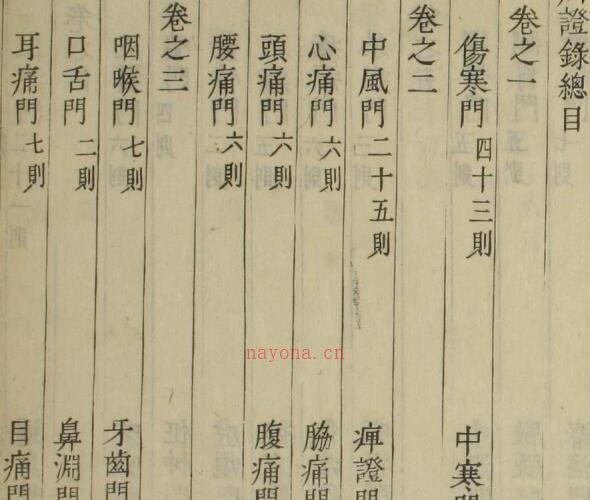 證錄總目
卷之一
傷寒門 四十三則 中寒門
卷之二
中風門 二十五則 痺證門
心痛門 六則 脇痛門
頭痛門 六則 腹痛門
腰痛門 六則
卷之三
咽喉門 七則 牙齒門
口舌門 二則 鼻淵門
耳痛門 七則 目痛門
nayona.cn